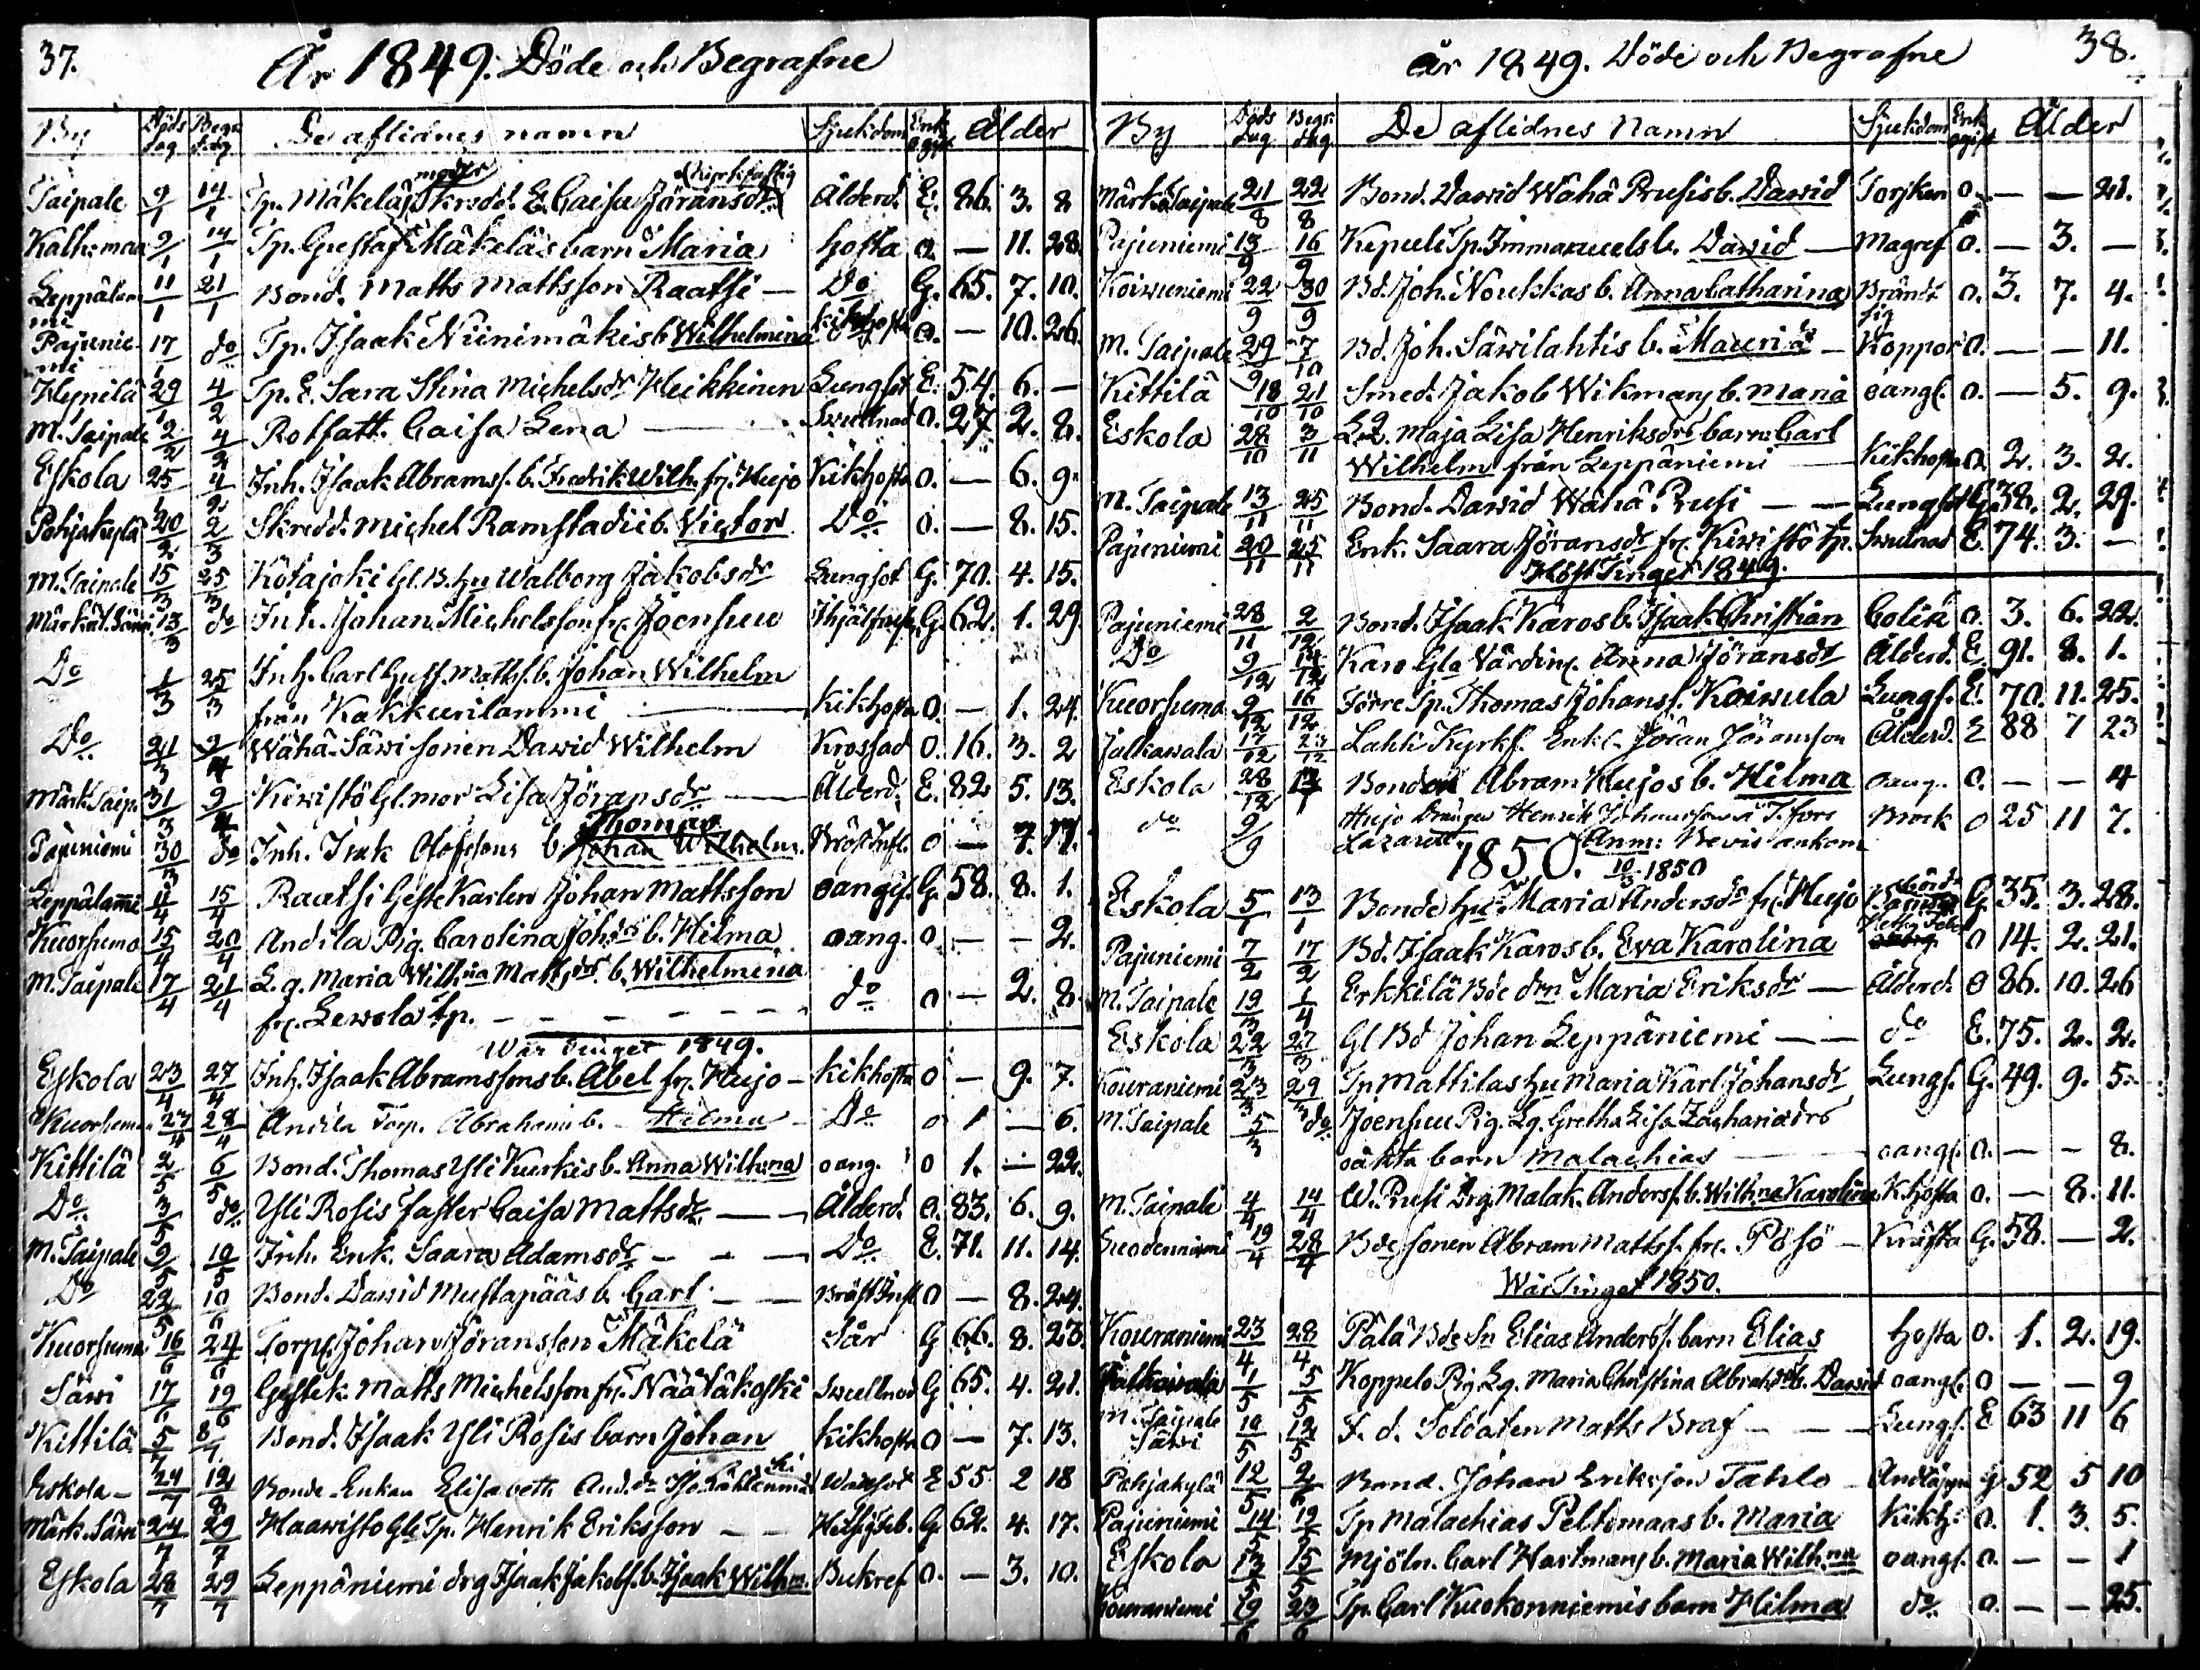 37.
År 1849. Döde och Begrafne
By Döds dag Begr. dag De aflidnes namn Sjukdom Enk. o. gift Ålder
moder kyrkfattig
Taipale 9/1 14/1 Tp. Mäkeläs E. Caisa Jöransdr Ålderd. E. 86. 3. 8
9/1 14/1 Tp. Gustaf Mäkeläs barn Maria hosta o. — 11. 28.
Leppälammi 11/1 21/1 Bond. Matts Mattsson Raatsi — Do G. 65. 7. 10.
Pajuniemi 17/1 do Tp. Isaak Niinimäkis b. Wilhelmina kikhosta o. — 10. 26.
Hynnilä 29/1 4/2 Tp. E. Sara Stina Michelsdr Heikkinen Lungsot E. 54. 6. —
M. Taipale 2/2 4/2 Rotfatt. Caisa Lena — Swullnad O. 27 2. 8.
Eskola 25/1 4/2 Inh. Isaak Abramss. b. Fredrik Wilh. fr. Hujo Kikhosta o. — 6. 9.
Pohjakylä 20/2 2/3 Skredd. Michel Ramstadii b. Victor Do o. — 8. 15.
M. Taipale 15/3 25/3 Kotajoki Gl. B. hu Walborg Jakobsdr Lungsot G. 70. 4. 15.
13/3 do Inh. Johan Michelsson fr. Joensuu G. 62. 1. 29.
Do 1/3 25/3 Inh. Carl Gust. Matts. b. Johan Wilhelm
från Kakkurilammi — kikhosta O. — 1. 24.
Do 21/3 9/4 Wähä-Säwi sonen Dawid Wilhelm Krossad O. 16. 3. 2
Märk. Taip. 31/3 9/4 Kiwistö Gl. mor Lisa Jöransdr — Ålderd. E. 82 5. 13.
Thomas
Pajuniemi 30/3 do Inh. Isak Olofssons b. Johan Wilhelm. Bröst Infl. o — 7. 17.
Leppälammi 11/4 15/4 Raatsi Gestekarlen Johan Mattsson oangif. G. 58. 8. 1.
Kuorsumo 15/4 20/4 Andila Pig. Carolina Johsdr b. Hilma oang. o — — 2.
M. Taipale 17/4 21/4 L. q. Maria Wilhna Mattsdrs b. Wilhelmina
fr. Lewola tp. — do o — 2. 8.
Wår Tinget 1849.
Eskola 23/4 27/4 Inh. Isaak Abramssons b. Abel fr. Hujo — kikhosta o — 9. 7.
Kuorsumo 27/4 28/4 Andila Torp. Abrahams b. Hilma — Do o 1 — 6.
Kittilä 2/5 6/5 Bond. Thomas Yli Kurkis b. Anna Wilhna oang. o 1. — 22.
Do 3/5 do Yli Rosis faster Caisa Mattsdr — Ålderd. O. 83. 6. 9.
M. Taipale 9/5 10/5 Inh. Enk. Saara Adamsdr — Do. E. 71. 11. 14.
Do 22/5 10/6 Bond. Dawid Mustapääs b. Carl — Bröst Infl. o — 8. 24.
Kuorsumo 16/6 24/6 Torp. Johan Jöransson Mäkelä Sår G 66. 8. 23.
Säwi 17/6 19/6 Gestek. Matts Michelsson fr. Näätäkoski Swullnad G 65. 4. 21.
Kittilä 5/7 8/7 Bond. Isaak Yli Rosis barn Johan kikhosta o — 7. 13.
Eskola — 24/7 12/8 Bonde-Enkan Elisabeth And.dr E 55 2 18
Märk. Säwi 24/7 29/7 Haawisto Gle Tp. Henrik Eriksson — G 62. 4. 17.
Eskola 28/7 29/7 Leppäniemi drg Isaak Jakobs. b. Isaak Wilhm. Bukref O. — 3. 10.
år 1849. Döde och Begrafne
38.
By Döds dag Begr. dag De aflidnes Namn Sjukdom Enk. ogift Ålder
Märk. Taipale 21/8 22/8 Bond. Dawid Wähä Prusis b. Dawid Torsken o. — — 21.
Pajuniemi 13/9 16/9 Tp. Immanuels b. Dawid — Magref o. — 3. —
Koiwuniemi 22/9 30/9 Bd. Joh. Noukkas b. Anna Catharina Bråndsig o. 3. 7. 4.
M. Taipale 29/9 7/10 Bd. Joh. Säwilahtis b. Mauri — Koppor o. — — 11.
Kittilä 18/10 21/10 Smed. Jakob Wikmans b. Maria oangf. o. — 5. 9.
Eskola 28/10 3/11 L. q. Maja Lisa Henriksdrs barn Carl
Wilhelm från Leppäniemi — Kikhosta o. 2. 3. 2.
M. Taipale 13/11 25/11 Bond. Dawid Wähä Prusi — Lungsot G. 38. 2. 29.
Pajuniemi 20/11 25/11 Enk. Saara Jöransdr fr. Kiwistö tp. Swulnad E. 74. 3. —
Höst Tinget 1849.
Pajuniemi 28/11 2/12 Bond. Isaak Karos b. Isaak Christian Colik o. 3. 6. 22.
Do 9/12 14/12 Karo Gla Värdin. Anna Jöransdr Ålderd. E. 91. 8. 1.
Kuorsumo 9/12 16/12 Förre Tp. Thomas Johanss. Koiwula Lungs. E. 70. 11. 25.
Jalkawala 17/12 23/12 Lahti Kyrkf. Enkl. Jöran Jöransson Ålderd. E 88 7 23
Eskola 28/12 Bonden Abram Hujos b. Hilma oang. o. — — 4
do 9/9 Hujo Drängen Henrik Johansson i T:fors Brock o 25 11 7.
Lazarett. Anm: Bevis ankom
1850. 10/3 1850
Eskola 5/1 13/1 Bonde hu. Maria Andersdr fr. Hujo G. 35. 3. 28.
Pajuniemi 7/2 17/2 Bd. Isaak Karos b. Eva Karolina o 14. 2. 21.
M. Taipale 19/3 1/4 Erkkilä Bde drn Maria Eriksdr — Ålderd. o 86. 10. 26
Eskola 22/3 27/3 Gl Bd Johan Leppäniemi — do E. 75. 2. 2.
Kouraniemi 23/3 29/3 Tp Mattilas hu Maria Karl Johansdr Lungs. G. 49. 9. 5.
M. Taipale 5/3 do Joensuu Pig. Lq. Gretha Lisa Zachariædrs
oäkta barn Malachias — oangf. o. — — 8.
M. Taipale 4/4 14/4 W. Prusi Drg. Malak. Anderss. b. Wilhna Karolina K. hosta o. — 8. 11.
Suodenniemi 19/4 28/4 Bde sonen Abram Mattss. fr. Pösö — Kräfta G. 58. — 2.
Wår Tinget 1850.
Kouraniemi 23/4 28/4 Pälä Bde Sn Elias Anderss. barn Elias hosta o. 1. 2. 19.
Jalkawala 1/5 5/5 Koppelo Pig. Lq. Maria Christina Abrahsdrs b. Dawid oangf. o — — 9
M. Taipale
Säwi 10/5 12/5 F. d. Soldaten Matts Braf — Lungs. E 63 11 6
Pohjakylä 12/5 2/6 Bond. Johan Eriksson Tahlo — Andtäppa G. 52 5 10
Pajuniemi 14/5 19/5 Tp Malachias Peltomaas b. Maria Kikh. o. 1. 3. 5.
Eskola 13/5 15/5 Mjöln. Carl Hartmans b. Maria Wilh.na oangf. o. — — 1
Kouraniemi 19/6 23/6 Tp. Carl Kuokonniemis barn Hilma do o. — — 25.